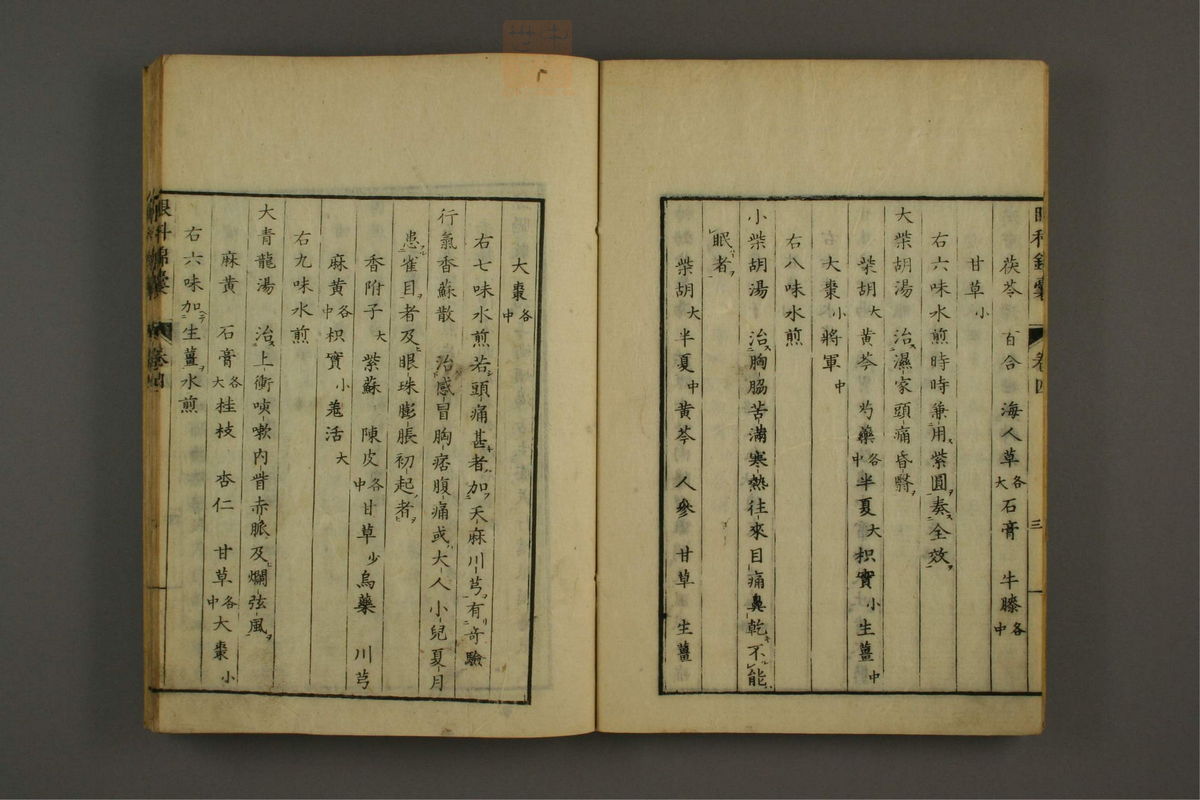 眼科錦囊 卷四 三
茯苓 百合 海人草各大 石膏 牛膝各中
甘草小
右六味水煎時時兼用紫圓奏全效
大柴胡湯 治濕家頭痛昏翳
柴胡大 黄芩 芍藥各中 半夏大 枳實小 生薑中
大棗小 將軍中
右八味水煎
小柴胡湯 治胸脇苦滿寒熱往來目痛鼻乾不能
眠者
柴胡大 半夏中 黄芩 人參 甘草 生薑
大棗各中
右七味水煎若頭痛甚者加天麻川芎有奇驗
行氣香蘇散 治感冒胸痞腹痛或大人小兒夏月
患雀目者及眼珠膨脹初起者
香附子大 紫蘇 陳皮各中 甘草少 烏藥 川芎
麻黄各中 枳實小 羗活大
右九味水煎
大青龍湯 治上衝咳嗽内眥赤脈及爛弦風
麻黄 石膏各大 桂枝 杏仁 甘草各中 大棗小
右六味加生薑水煎
眼科錦囊 卷四